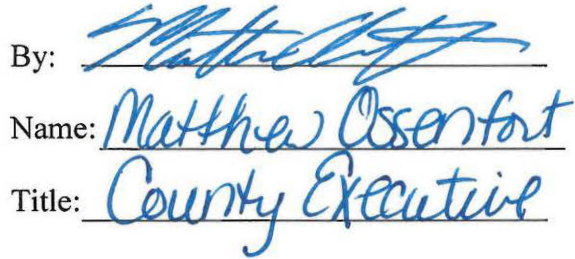 By:
Name: Matthew Ossenfort
Title: County Executive